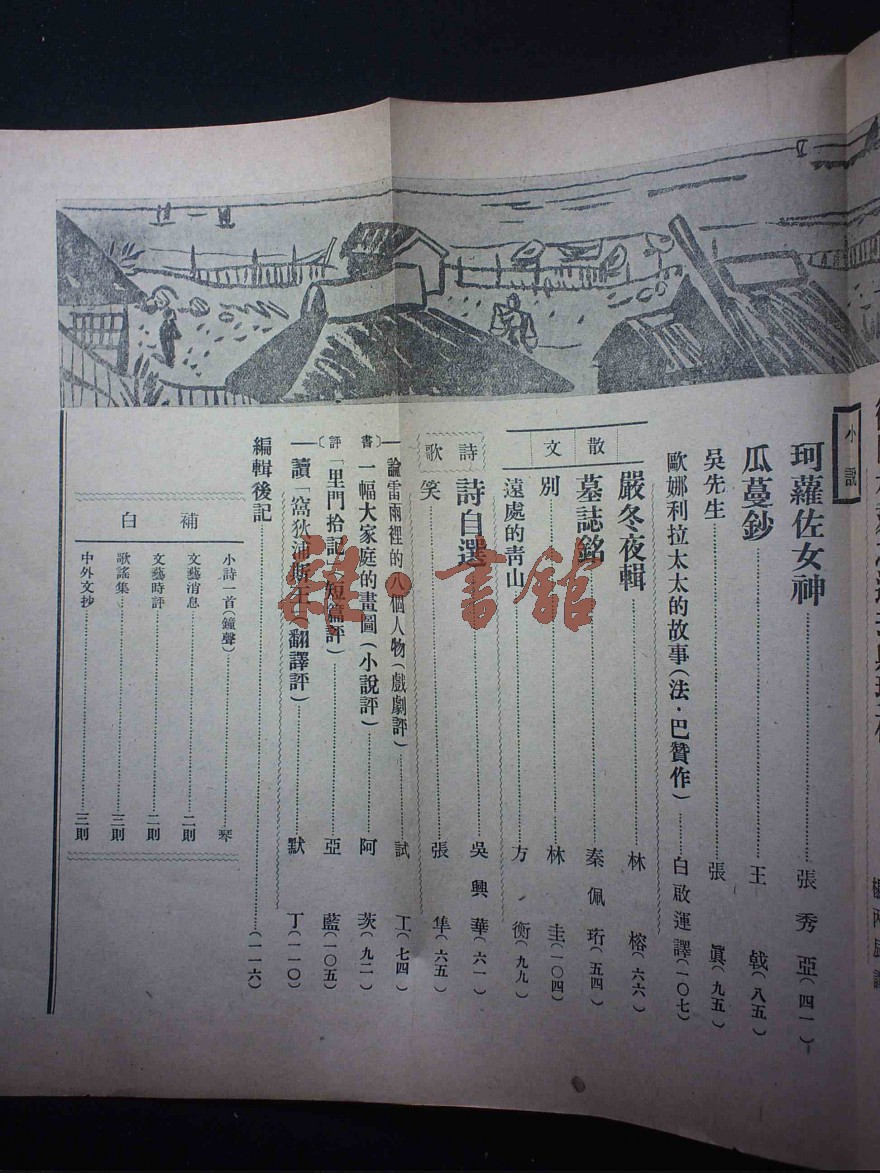 小說
珂蘿佐女神……張秀亞(四一)
瓜蔓鈔……王戟(八五)
吳先生……張眞(九五)
歐娜利拉太太的故事(法·巴贊作)……白啟運譯(一〇七)
散文
嚴冬夜輯……林榕(六六)
墓誌銘……秦佩珩(五四)
別……林圭(一〇四)
遠處的靑山……方衡(九九)
詩歌
詩自選……吳興華(六一)
笑……張隼(六五)
書評
論雷雨裡的八個人物(戲劇評)……試工(七四)
一幅大家庭的畫圖(小說評)……阿茨(九二)
「里門拾記」(短篇評)……亞藍(一〇五)
讀「窩狄浦斯王」(翻譯評)……默丁(一一〇)
編輯後記……(一一六)
補白
小詩一首(鐘聲)……琴
文藝消息……二則
文藝時評……二則
歌謠集……三則
中外文抄……三則
雜·書館